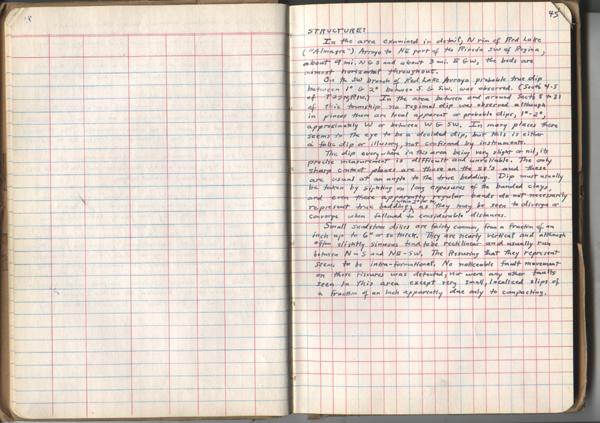 45
STRUCTURE:
In the area examined in detail, N rim of Red Lake
("Almagre") Arroyo to NE part of the Rincón SW of Regina,
about 9 mi. N & S and about 3 mi. E & W, the beds are
almost horizontal throughout.
On the SW branch of Red Lake Arroyo probable true dip
between 1° & 2° between S. & S.W. was observed. (Sects 4-5
of In the area between and around Sects 5 to 31
of this township no regional dip was observed although
in places there are local apparent or probable dips, 1°-2°,
approximately W or between W & SW. In many places there
seems to the eye to be a decided dip, but this is either
a false dip or illusory, not confirmed by instruments.
The dip everywhere in this area being very slight or nil, its
precise measurement is difficult and unreliable. The only
sharp contact planes are those on the ss's and these
are usual at an angle to the true bedding. Dip must usually
be taken by sighting on long exposures of the banded clays,
and even these apparently regular bands do not necessarily
represent true bedding, as they may be seen to diverge or
converge when followed to considerable distances.
Small sandstone dikes are fairly common, from a fraction of an
inch up to 6" or so thick. They are nearly vertical and although
often slightly sinuous tend to be rectilinear and usually run
between N-S and NE-SW. The fissuring that they represent
seems to be intra-formational. No noticeable fault movement
on these fissures was detected, nor were any other faults
seen in this area except very small, localized slips of
a fraction of an inch apparently due only to compacting.